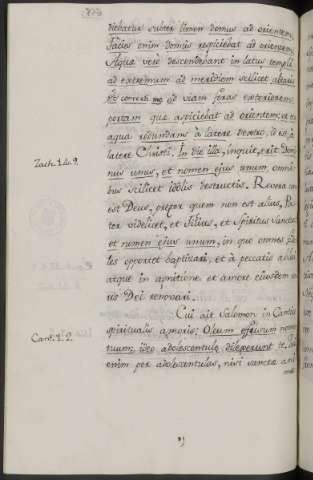 dicbatur subter limen domus ad orientem,
facies enim domus respiciebat ad orientem,
Aqua verò descendebant in latus templi
ad extremum ad meridiem scilicet altaris
Et convertit me ad viam foras exteriorem
portam que aspiciebat ad orientem; et ecce
aqua redundans à latere dextro, id est, à
latere Christi. In die illa, inquit, erit Domi-
Zach. 14. 9.
nus unus, et nomen ejus unum, omni-
bus scilicet idolis destructis. Revera enim
est Deus, preter quem non est alius, Pa-
ter videlicet, et Filius, et Spiritus Sanctus
et nomen ejus unum, in quo omnes fide-
les opportet baptizari, et à peccatis ablui
atque in agnitione et amore ejusdem no-
nis Dei renovari.
Cui ait Salomon in Cantico
spiritualis amoris: Oleum effusum nomen
Cant. 1. 2.
tuum; ideo adolescentule dilexerunt te.
enim per adolescentulas, nisi sancte ani-